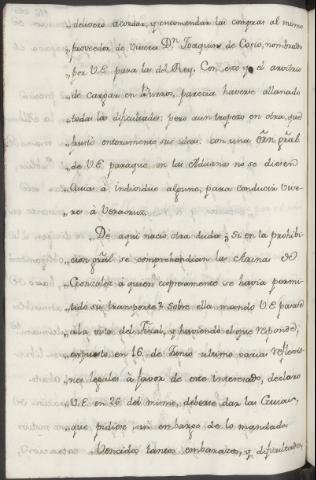 "deliverò acordar, y encomendar las compras al mismo
"proveedor de viveres Dn. Joaquin de Cosio, nombrado
"por V.E. para las del Rey. Con esto, y á arvitrio
"de cargar en Burros, parecia haverse allanado
"todas las dificultades; pero aun tropezò en otra, que
frustò enteramente sus ideas: con una òrn gral.
"de V.E. paraque en las Aduanas no se diesen
"Guias à individuo alguno, para conducir vive-
"res à Veracruz.
"De aqui nació otra duda ¿ Si en la prohibi-
"cion gral. se comprehendian las Arinas de
"Gonzalez à quien expresamente se havia permi-
"tido su transporte? Sobre ella mandó V.E. pasase
"à la vista del Fiscal, y haviendo el que responde,
"expuesto en 16 de Junio ultimo varias reflexio-
"nes legales à favor de este interesado, declarò
"V.E. en 26 del mismo, deberse dar las Guias,
"que pidiese sin embargo de lo mandado.
"Vencidos tantos embarazos, y dificultades,